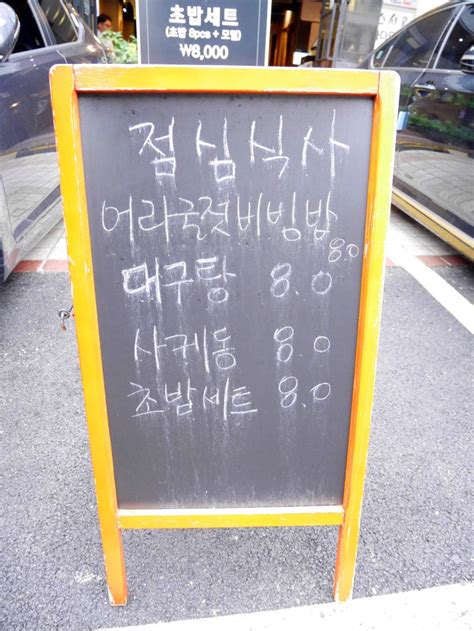 초밥세트
(초밥 8pcs + 모밀)
₩8,000
점심식사
어라굴젓비빙밥
8.0
대구탕 8.0
사케동 8.0
초밥세트 8.0